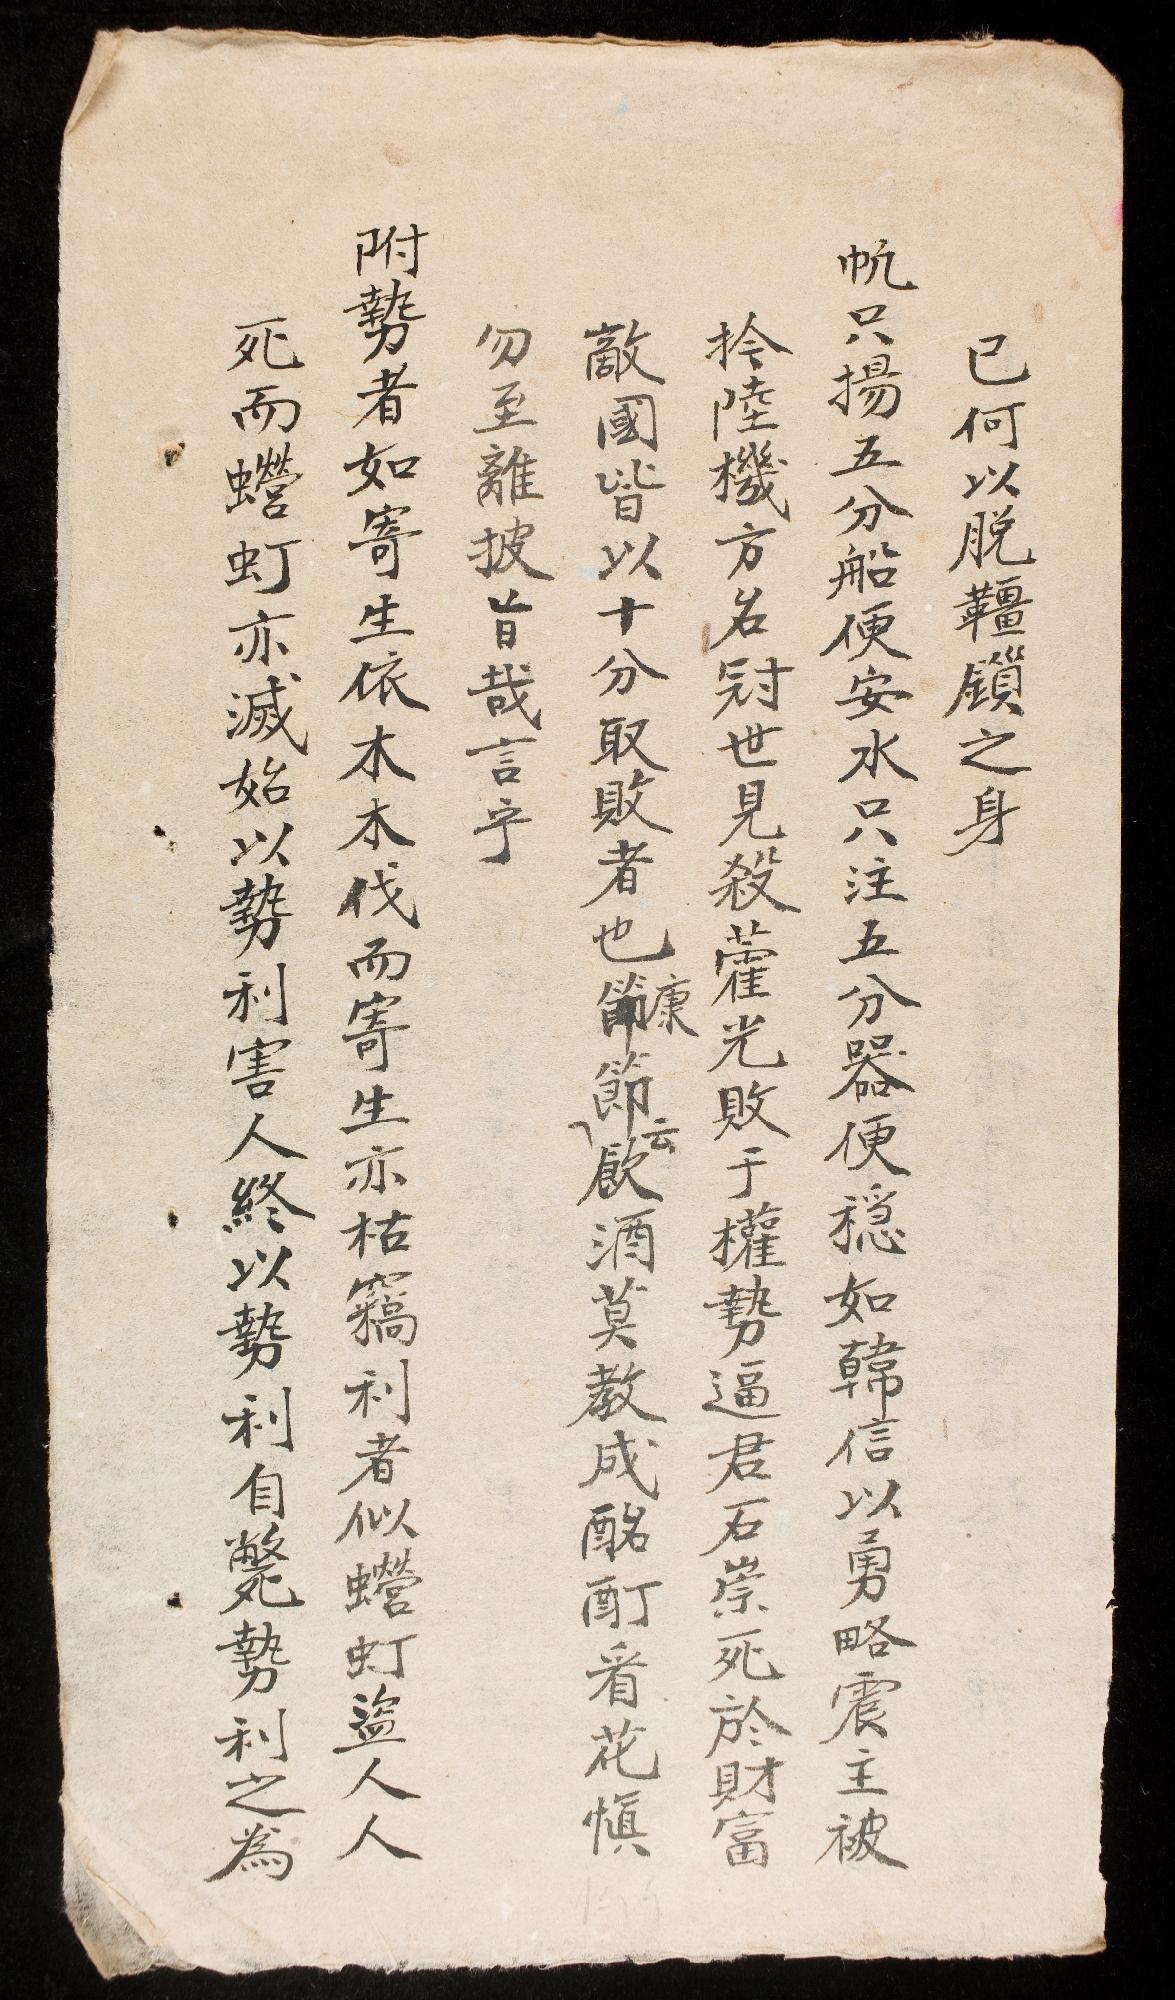 已何以脱韁鎖之身
帆只揚五分船便安水只注五分器便穏如韓信以勇略震主被
擒陸機方名冠世見殺藿光敗于權勢逼君石崇死於財富
敵國皆以十分取敗者也康節云飲酒莫教成酩酊看花愼
勿至離披旨哉言乎
附勢者如寄生依木木伐而寄生亦枯竊利者似蠮虰盜人人
死而蠮虰亦滅始以勢利害人終以勢利自斃勢利之為